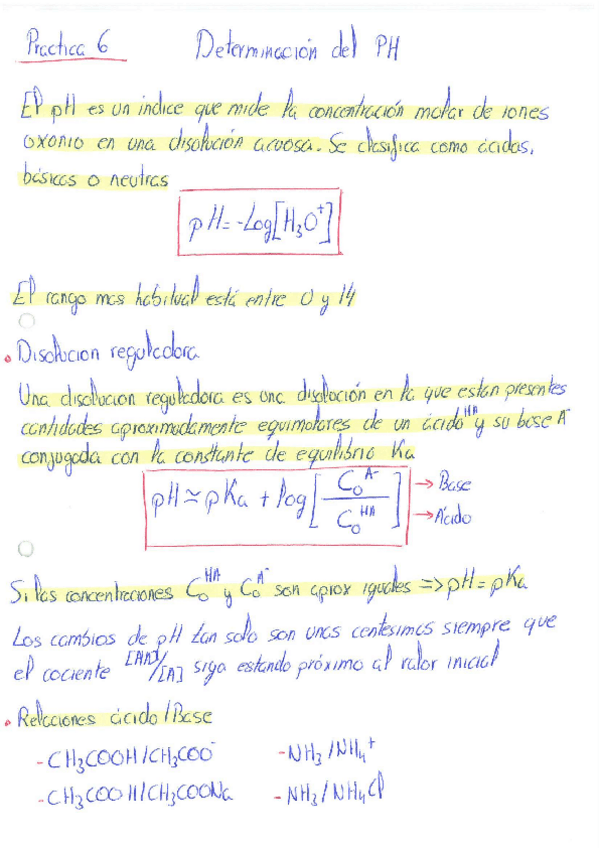 Practica 6 Determinación del PH
El pH es un indice que mide la concentración molar de iones
oxonio en una disolución acuosa. Se clasifica como ácidas,
básicas o neutras
pH = -Log[H₃O⁺]
El rango mas habitual está entre 0 y 14
• Disolucion reguladora
Una disolucion reguladora es una disolución en la que estan presentes
cantidades aproximadamente equimolares de un ácido HA y su base A⁻
conjugada con la constante de equilibrio Ka
pH ≃ pKa + log [C₀^A⁻ / C₀^HA] → Base → Ácido
Si las concentraciones C₀^HA y C₀^A⁻ son aprox iguales => pH = pKa
Los cambios de pH tan solo son unas centesimas siempre que
el cociente [HA]/[A] siga estando próximo al valor inicial
• Relaciones ácido/Base
- CH₃COOH/CH₃COO⁻ - NH₃/NH₄⁺
- CH₃COOH/CH₃COONa - NH₃/NH₄Cl